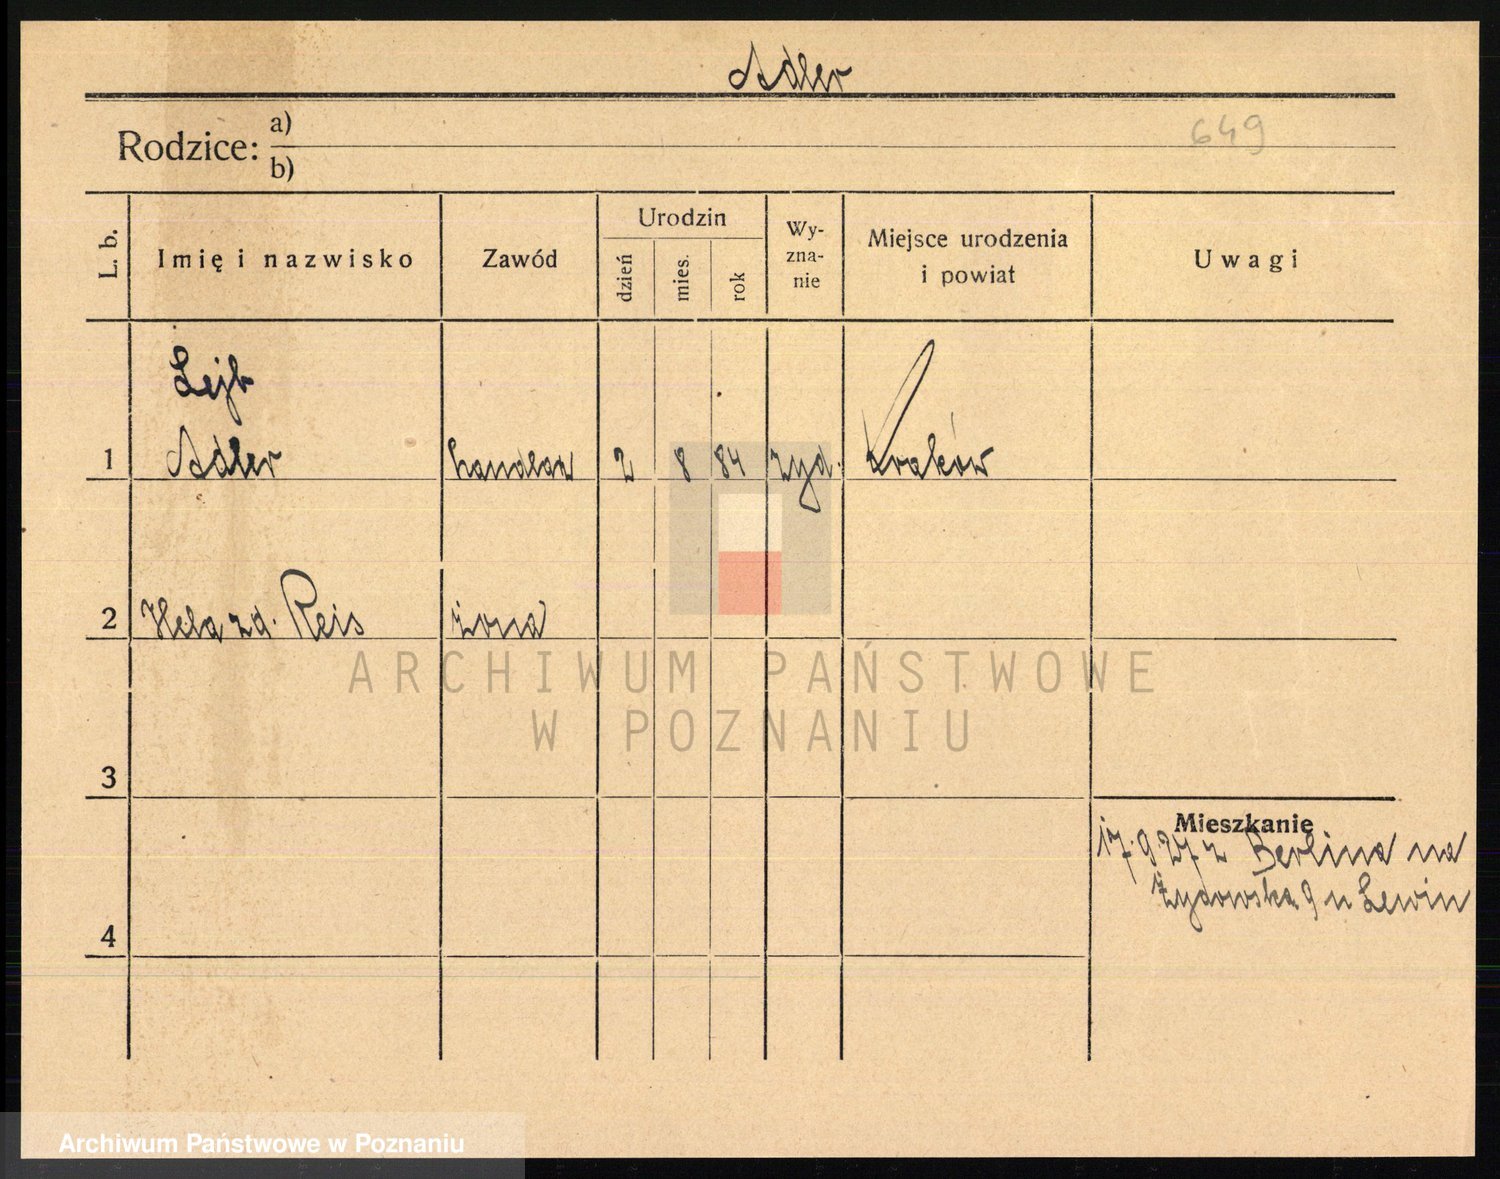 Adler
649
Rodzice: a)
b)
L. b.
Imię i nazwisko
Zawód
Urodzin
dzień
mies.
rok
Wy-
zna-
nie
Miejsce urodzenia
i powiat
Uwagi
Lejb
1 Adler handlarz 2 8 84 żyd. Kraków
2 Hela zd. Reis żona
3
Mieszkanie
17.9.27 z Berlina na
Żydowska 9 u Lewin
4
ARCHIWUM PAŃSTWOWE
W POZNANIU
Archiwum Państwowe w Poznaniu